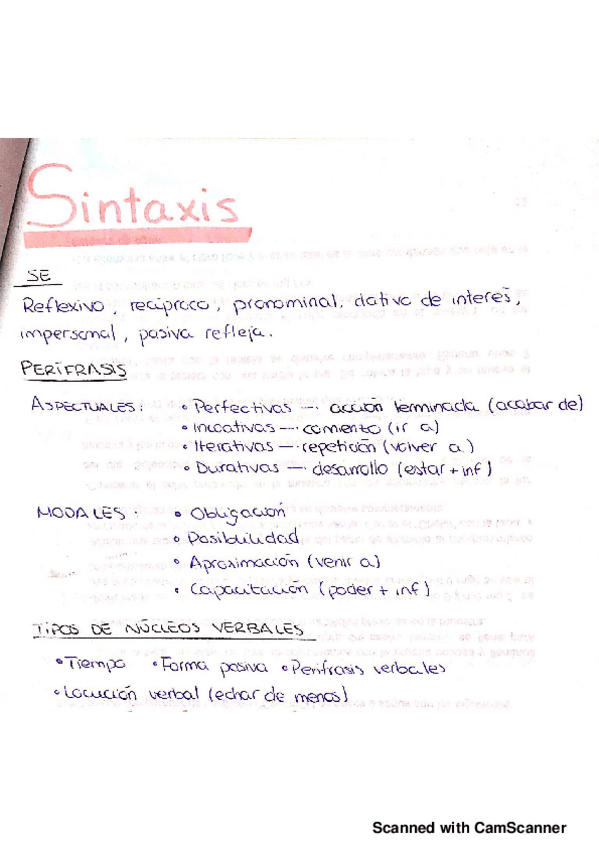 Sintaxis
SE
Reflexivo, recíproco, pronominal, dativo de interés,
impersonal, pasiva refleja.
PERÍFRASIS
ASPECTUALES: • Perfectivas —· acción terminada (acabar de)
• Incoativas —· comienzo (ir a)
• Iterativas —· repetición (volver a)
• Durativas —· desarrollo (estar + inf)
MODALES: • Obligación
• Posibilidad
• Aproximación (venir a)
• Capacitación (poder + inf)
TIPOS DE NÚCLEOS VERBALES
• Tiempo • Forma pasiva • Perífrasis verbales
• Locución verbal (echar de menos)
Scanned with CamScanner